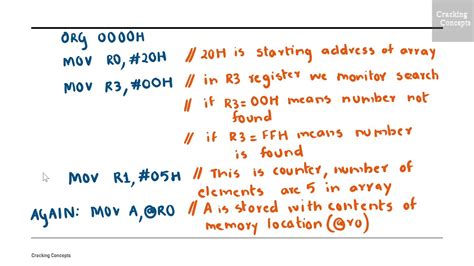 Cracking
Concepts
ORG 0000H
MOV R0, #20H // 20H is starting address of array
MOV R3, #00H // in R3 register we monitor search
// if R3=00H means number not
found
// if R3=FFH means number
is found
MOV R1, #05H // This is counter, number of
elements are 5 in array
AGAIN: MOV A,@R0 // A is stored with contents of
memory location (@r0)
Cracking Concepts